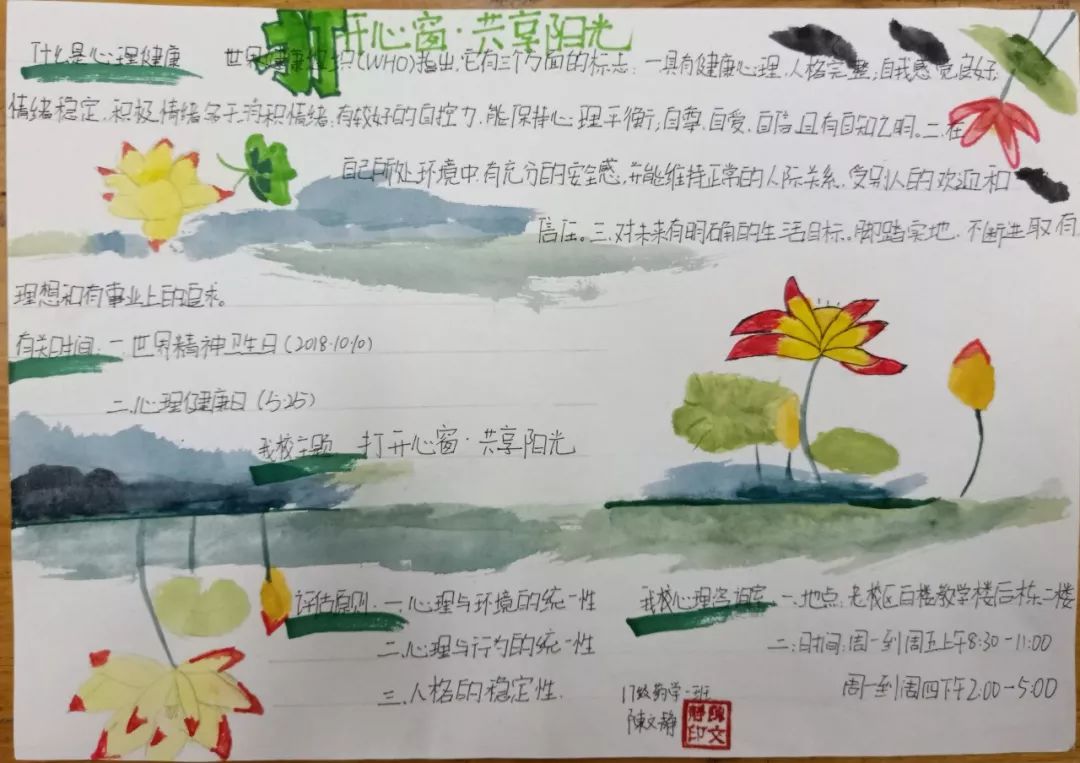 打开心窗·共享阳光
什么是心理健康 世界健康组织(WHO)指出,它有三个方面的标志:一具有健康心理,人格完整;自我感觉良好;
情绪稳定,积极情绪多于消积情绪;有较好的自控力,能保持心理平衡;自尊,自爱,自信且有自知之明。二.在
自己所处环境中,有充分的安全感,并能维持正常的人际关系,受别人的欢迎和
信任。三.对未来有明确的生活目标。脚踏实地,不断进取,有
理想和有事业上的追求。
有关时间:一.世界精神卫生日(2018.10.10)
二.心理健康日(5.25)
我校主题 打开心窗·共享阳光
评估原则:一.心理与环境的统一性
二.心理与行为的统一性
三.人格的稳定性.
我校心理咨询室 一.地点:老校区白楼教学楼后栋二楼
二.时间:周一到周五上午8:30-11:00
周一到周四下午2:00-5:00
17级药学一班
陳文静
陳文
静印